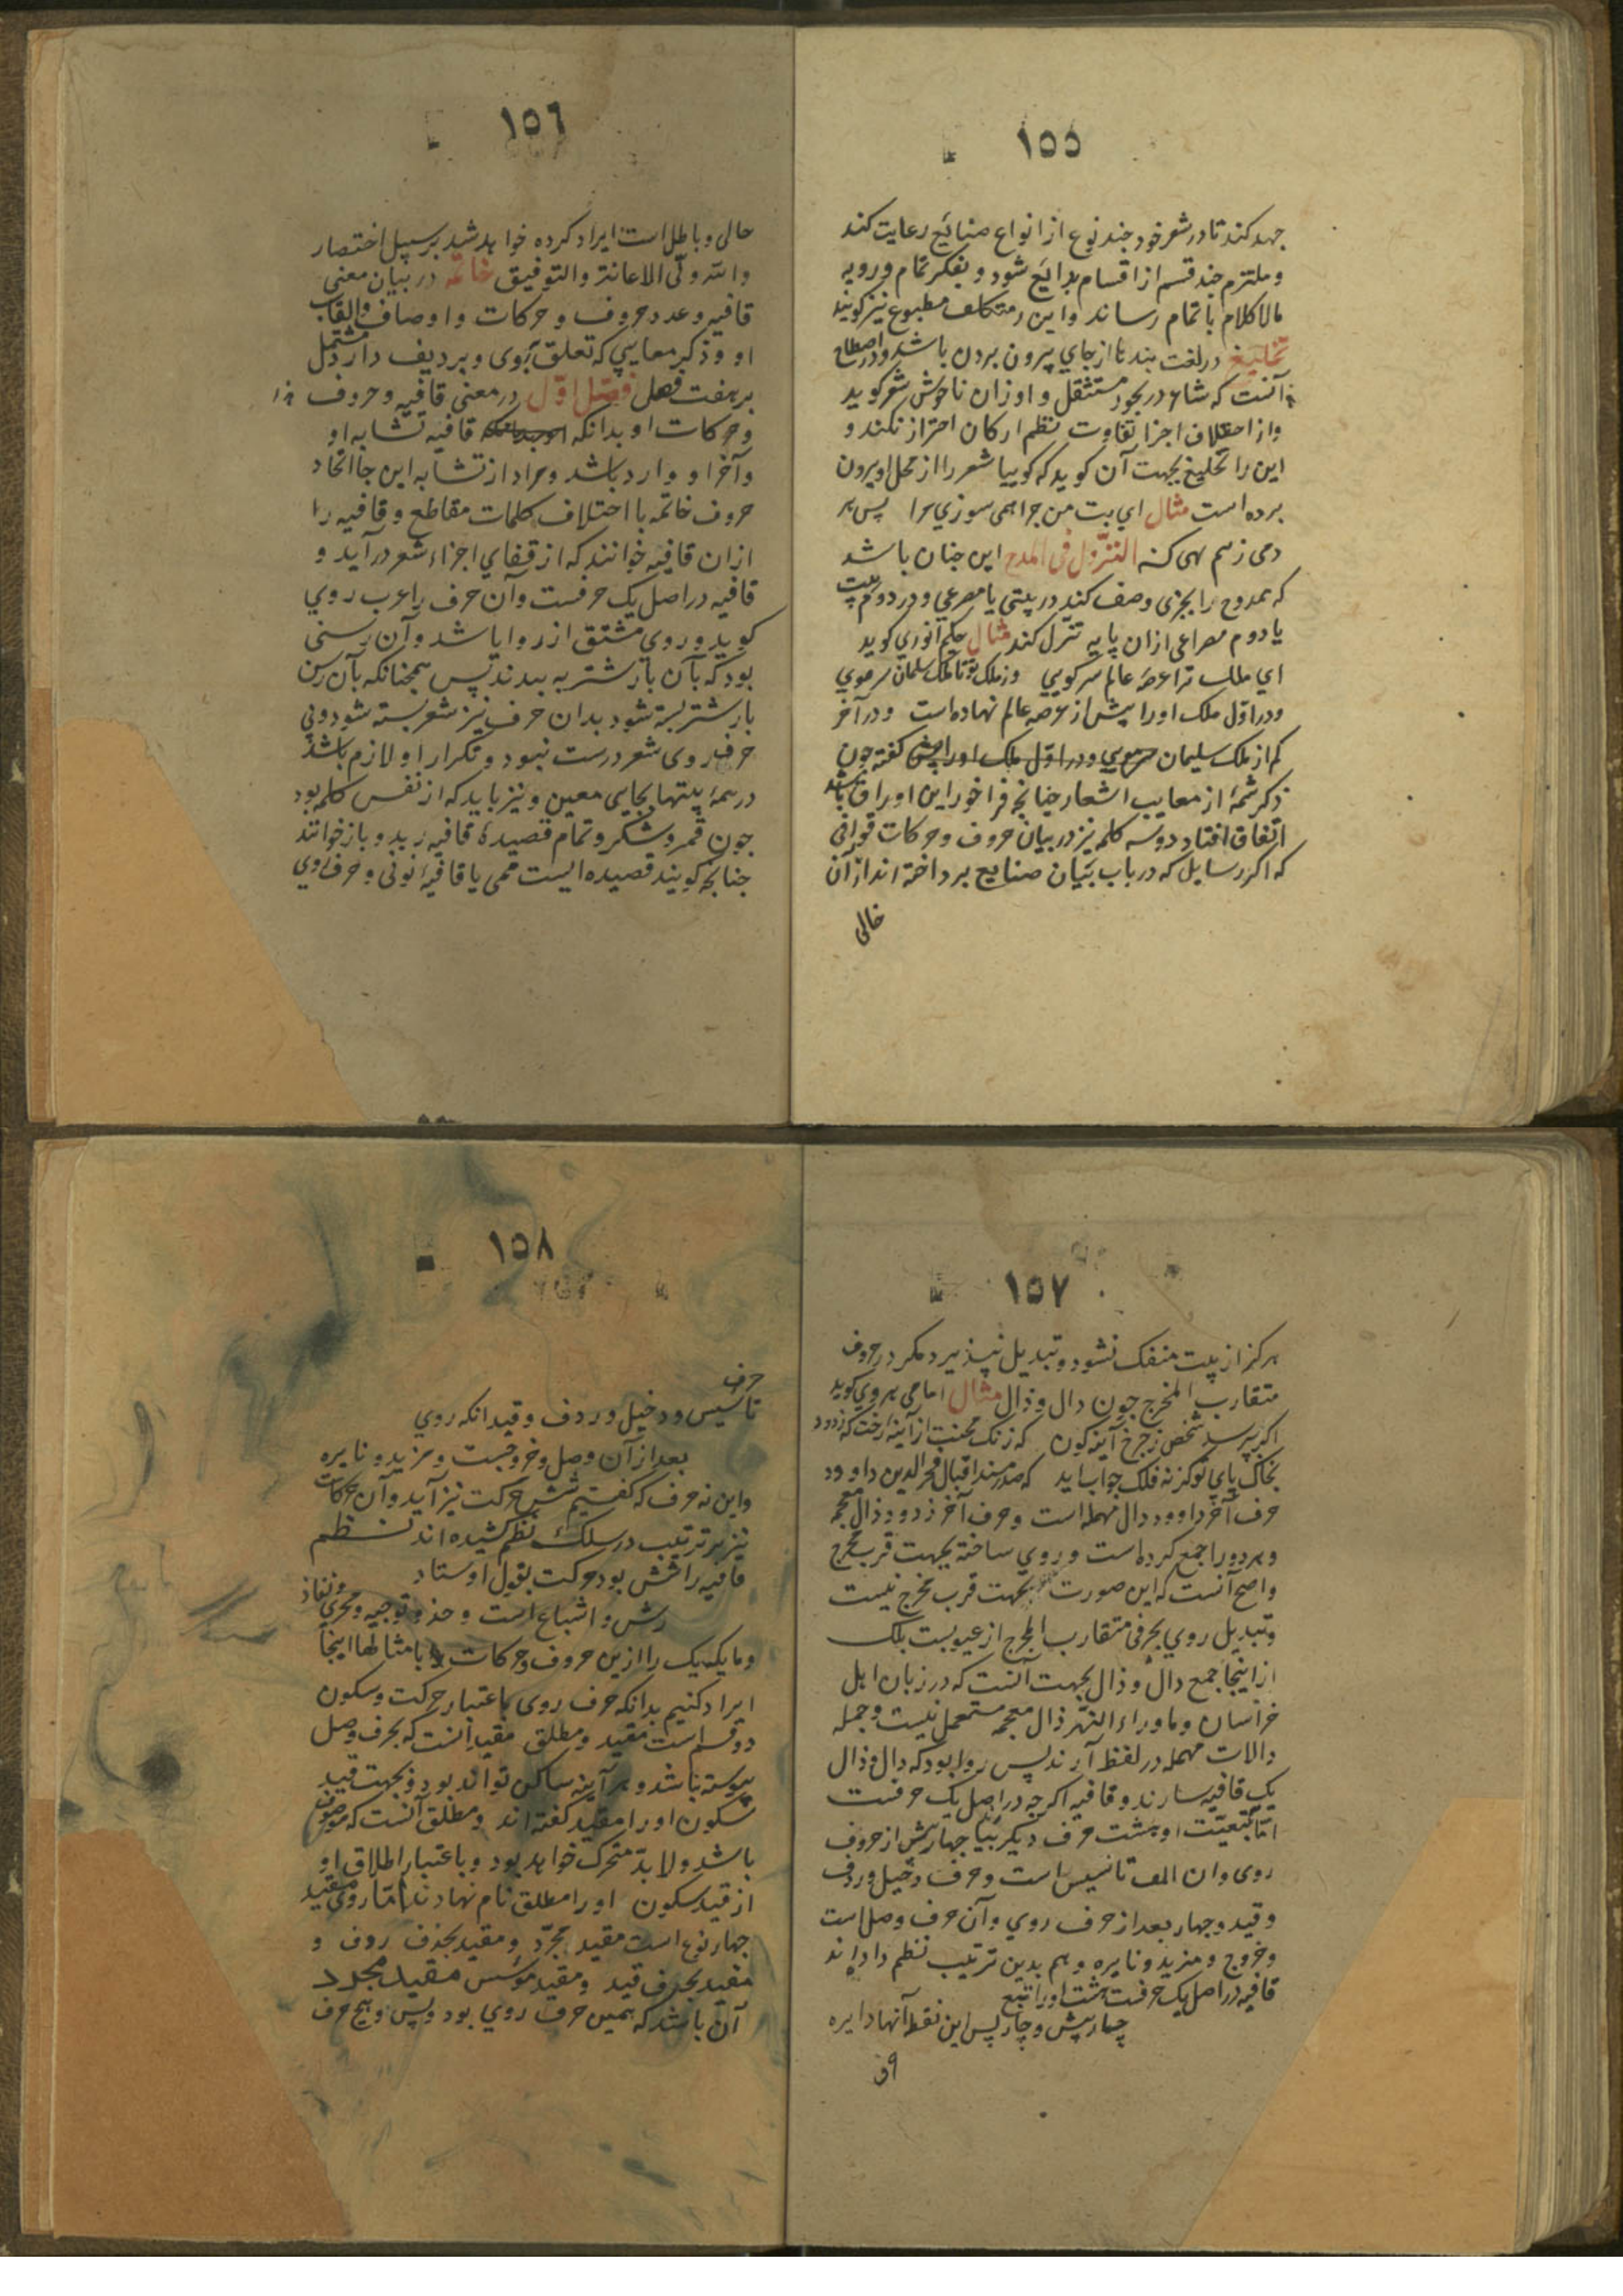 ١٥٥
جهد كند تا در شعر خود جند نوع از انواع صنائع رعايت كند
و ملتزم جند قسم از اقسام بدائع شود و بفكر تمام و رويه
مالا كلام باتمام رساند و اين را متكلف مطبوع نيز كويند
تخليع در لغت بند تا از جاي بيرون بردن باشد و در اصطلاح
آنست كه شاعر در بحور مستثقل و اوزان ناخوش شعر كويد
و از اختلاف اجزا تفاوت نظم اركان احتراز نكند و
اين را تخليع بجهت آن كويد كه كوييا شعر را از محل او بيرون
برده است مثال اي بت من جرا همى سوزي مرا پس هر
دمى زنم همى كنه التنزّل فى المدح اين جنان باشد
كه ممدوح را بجزى وصف كند در بيتى يا مصرعي و در دوم بيت
يا دوم مصراعى ازان پايه تنزل كند مثال حكيم انوري كويد
اي ملك ترا عرصه عالم سر كويي وز ملك تو تا ملك سليمان سر مويي
و در اوّل ملك او را پيش از عرصه عالم نهاده است و در آخر
كم از ملك سليمان و در اوّل ملك او را گفته جون
ذكر شمهٔ از معايب اشعار جنانجه فراخور اين اوراق باشد
اتفاق افتاد دو سه كلمه نيز در بيان حروف و حركات قوافى
كه اكثر رسايل كه در باب بيان صنايع برداخته اند از آن
خالى
١٥٦
حالى و باطل است ايراد كرده خواهد شد بر سبيل اختصار
والله ولّى الاعانة والتوفيق خاتمه در بيان معنى
قافيه و عدد حروف و حركات و اوصاف و القاب
او و ذكر معايبي كه تعلق بروى و برديف دارد مشتمل
بر هفت فصل فصل اوّل در معنى قافيه و حروف
و حركات او بدانكه قافيه تشابه او
و آخر او وارد باشد و مراد از تشابه اين جا اتحاد
حروف خاتمه با اختلاف كلمات مقاطع و قافيه را
ازان قافيه خوانند كه از قفاي اجزاء شعر در آيد و
قافيه در اصل يك حرفست و آن حرف را عرب روي
كويد و روي مشتق از روا باشد و آن رسنى
بود كه بآن بار شتر به بندند پس همجنانكه بآن رسن
بار شتر بسته شود بدان حرف نيز شعر بسته شود و بي
حرف روى شعر درست نبود و تكرار او لازم باشد
در همهٔ بيتها بجايى معين و نيز بايد كه از نفس كلمه بود
جون قمر و شكر و تمام قصيده قافيه بديد و باز خوانند
جنانجه كويند قصيده ايست ميمى يا قافيه نونى و حرف روي
١٥٧
هركز از بيت منفك نشود و تبديل نپذيرد مكر در حروف
متقارب المخرج جون دال و ذال مثال امامى هروي كويد
اكر بپرسد شخصى ز جرخ آينه كون كه زنك محنت از آينه رخت كه زدود
بخاك پاي تو كز نه فلك جواب ايد كه صدر مسند اقبال فخر الدين داوود
حرف آخر داوود دال مهمله است و حرف آخر زدود ذال معجمه
و هر دو را جمع كرده است و روي ساخته بجهت قرب مخرج
و اصح آنست كه اين صورت بجهت قرب مخرج نيست
و تبديل روي بحرفى متقارب المخرج از عيوبست بلك
از اينجا جمع دال و ذال بجهت آنست كه در زبان اهل
خراسان و ماوراء النهر ذال معجمه مستعمل نيست و جمله
دالات مهمله در لفظ آرند پس روا بود كه دال و ذال
يك قافيه سازند و قافيه اكر جه در اصل يك حرفست
امّا بتبعيّت او هشت حرف ديكر بيا جهار پيش از حروف
روى و ان الف تاسيس است و حرف دخيل و ردف
و قيد و جهار بعد از حرف روي و آن حرف وصل است
و خروج و مزيد و نايره و هم بدين ترتيب نظم داده اند
قافيه در اصل يك حرفست هشت او را تبع
چهار پيش و چار پس اين نقطه آنها دايره
١٥٨
حرف
تاسيس و دخيل و ردف و قيد انكه روي
بعد ازان وصل و خروجست و مزيد و نايره
و اين نه حرف كه كفتيم شش حركت نيز آيد و آن حركات
نيز بر ترتيب در سلك نظم كشيده اند نظم
قافيه را شش بود حركت بقول اوستاد
رس و اشباع است و حذو و توجيه و مجرى و نفاذ
و ما يكيك را ازين حروف و حركات با مثالها اينجا
ايراد كنيم بدانكه حرف روى باعتبار حركت و سكون
دو قسم است مقيد و مطلق مقيد آنست كه بحرف وصل
پيوسته نباشد و هر آينه ساكن تواند بود و بجهت قيد
سكون او را مقيد كفته اند و مطلق آنست كه موصول
باشد و لابد متحرك خواهد بود و باعتبار اطلاق او
از قيد سكون او را مطلق نام نهادند امّا روى مقيد
جهار نوع است مقيد مجرّد و مقيد بحرف ردف و
مقيد بحرف قيد و مقيد مؤسس مقيد مجرد
آن باشد كه همين حرف روي بود و پس و هيج حرف